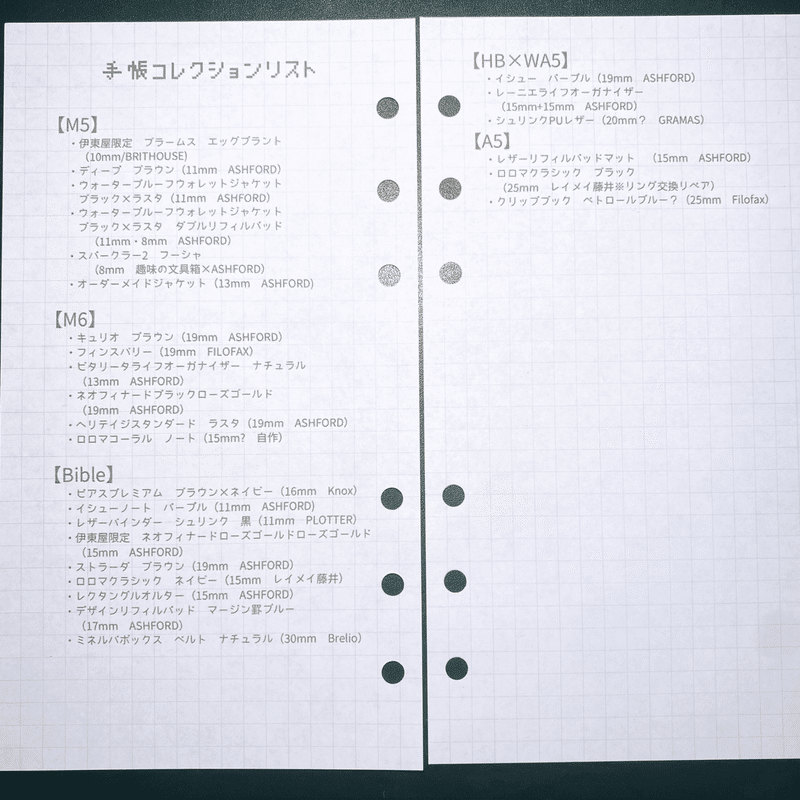 手帳コレクションリスト
【M5】
・伊東屋限定　ブラームス　エッグプラント
（10mm/BRITHOUSE)
・ディープ　ブラウン（11mm　ASHFORD）
・ウォータープルーフウォレットジャケット
ブラック×ラスタ（11mm　ASHFORD）
・ウォータープルーフウォレットジャケット
ブラック×ラスタ　ダブルリフィルパッド
（11mm・8mm　ASHFORD）
・スパークラー2　フーシャ
（8mm　趣味の文具箱×ASHFORD）
・オーダーメイドジャケット（13mm　ASHFORD）
【M6】
・キュリオ　ブラウン（19mm　ASHFORD）
・フィンスバリー（19mm　FILOFAX）
・ピタリータライフオーガナイザー　ナチュラル
（13mm　ASHFORD）
・ネオフィナードブラックローズゴールド
（19mm　ASHFORD）
・ヘリテイジスタンダード　ラスタ（19mm　ASHFORD）
・ロロマコーラル　ノート（15mm?　自作）
【Bible】
・ピアスプレミアム　ブラウン×ネイビー（16mm　Knox）
・イシューノート　パープル（11mm　ASHFORD）
・レザーバインダー　シュリンク　黒（11mm　PLOTTER）
・伊東屋限定　ネオフィナードローズゴールドローズゴールド
（15mm　ASHFORD）
・ストラーダ　ブラウン（19mm　ASHFORD）
・ロロマクラシック　ネイビー（15mm　レイメイ藤井）
・レクタングルオルター（15mm　ASHFORD）
・デザインリフィルパッド　マージン罫ブルー
（17mm　ASHFORD）
・ミネルバボックス　ベルト　ナチュラル（30mm　Brelio）
【HB×WA5】
・イシュー　パープル（19mm　ASHFORD）
・レーニエライフオーガナイザー
（15mm+15mm　ASHFORD）
・シュリンクPUレザー（20mm？　GRAMAS）
【A5】
・レザーリフィルパッドマット　（15mm　ASHFORD）
・ロロマクラシック　ブラック
（25mm　レイメイ藤井※リング交換リペア）
・クリップブック　ペトロールブルー？（25mm　Filofax）